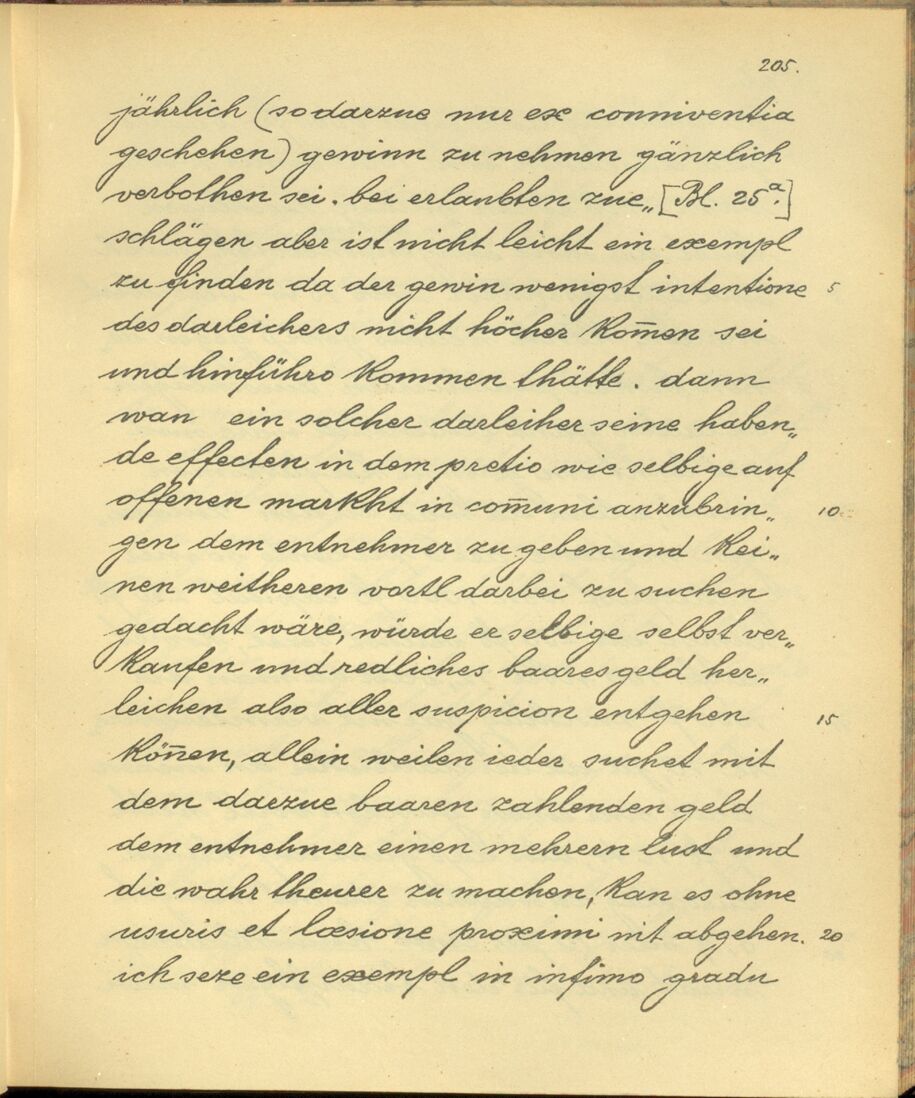 205.
jährlich (so darzue nur ex conniventia
geschehen) gewinn zu nehmen gänzlich
verbothen sei. bei erlaubten zue„ [Bl. 25ª.]
schlägen aber ist nicht leicht ein exempl
zu finden da der gewin wenigst intentione 5
des darleichers nicht höcher kom̄en sei
und hinführo kommen thätte. dann
wan ein solcher darleiher seine haben„
de effecten in dem pretio wie selbige auf
offenen markht in com̄uni anzubrin„ 10
gen dem entnehmer zu geben und kei„
nen weitheren vortl darbei zu suchen
gedacht wäre, würde er selbige selbst ver„
kaufen und redliches baares geld her„
leichen also aller suspicion entgehen 15
kön̄en, allein weilen ieder suchet mit
dem darzue baaren zahlenden geld
dem entnehmer einen mehrern lust und
die wahr theurer zu machen, kan es ohne
usuris et læsione proximi nit abgehen. 20
ich seze ein exempl in infimo gradu